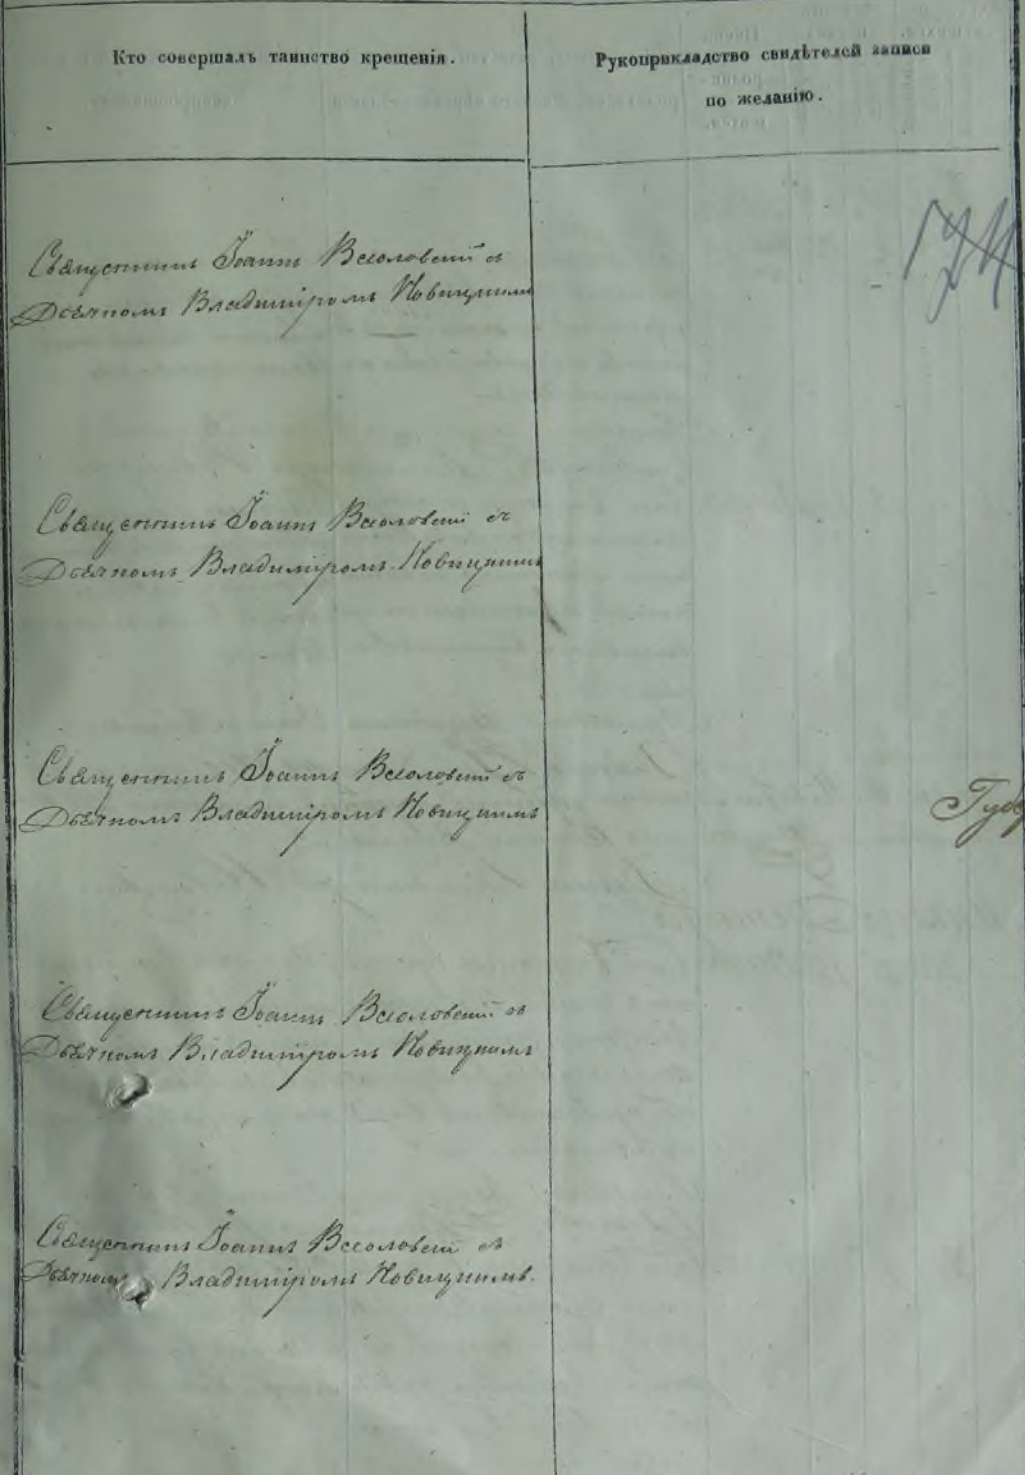 Кто совершалъ таинство крещенія.
Рукоприкладство свидѣтелей записи
по желанію.
Священникъ Іоаннъ Весоловскій съ
Дьячкомъ Владиміромъ Новицкимъ
74
Священникъ Іоаннъ Весоловскій съ
Дьячкомъ Владиміромъ Новицкимъ
Священникъ Іоаннъ Весоловскій съ
Дьячкомъ Владиміромъ Новицкимъ
Губ
Священникъ Іоаннъ Весоловскій съ
Дьячкомъ Владиміромъ Новицкимъ
Священникъ Іоаннъ Весоловскій съ
Дьячкомъ Владиміромъ Новицкимъ.